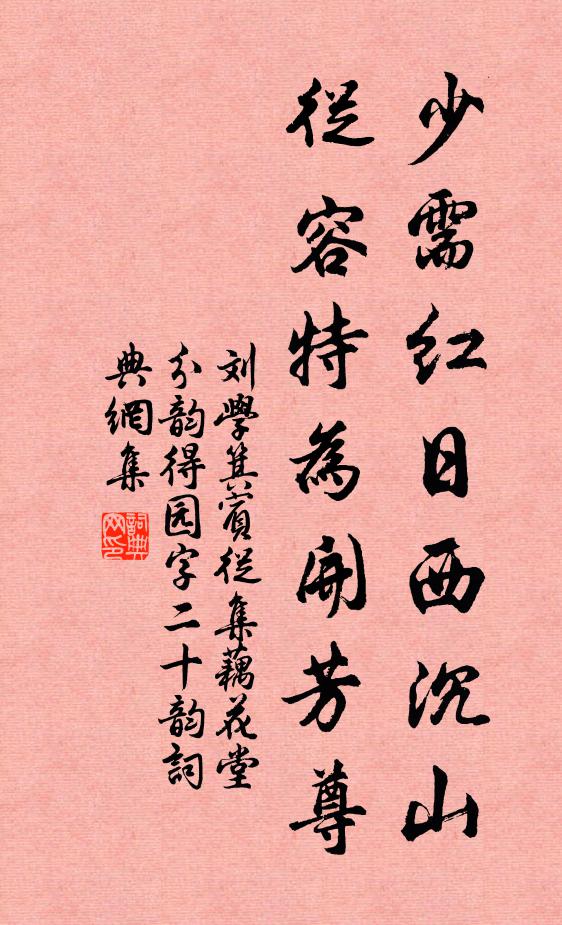 少需红日西沉山
從容特為開芳尊
刘學箕賓從集藕花堂
分韵得园字二十韵詞
典網集
詞典網印